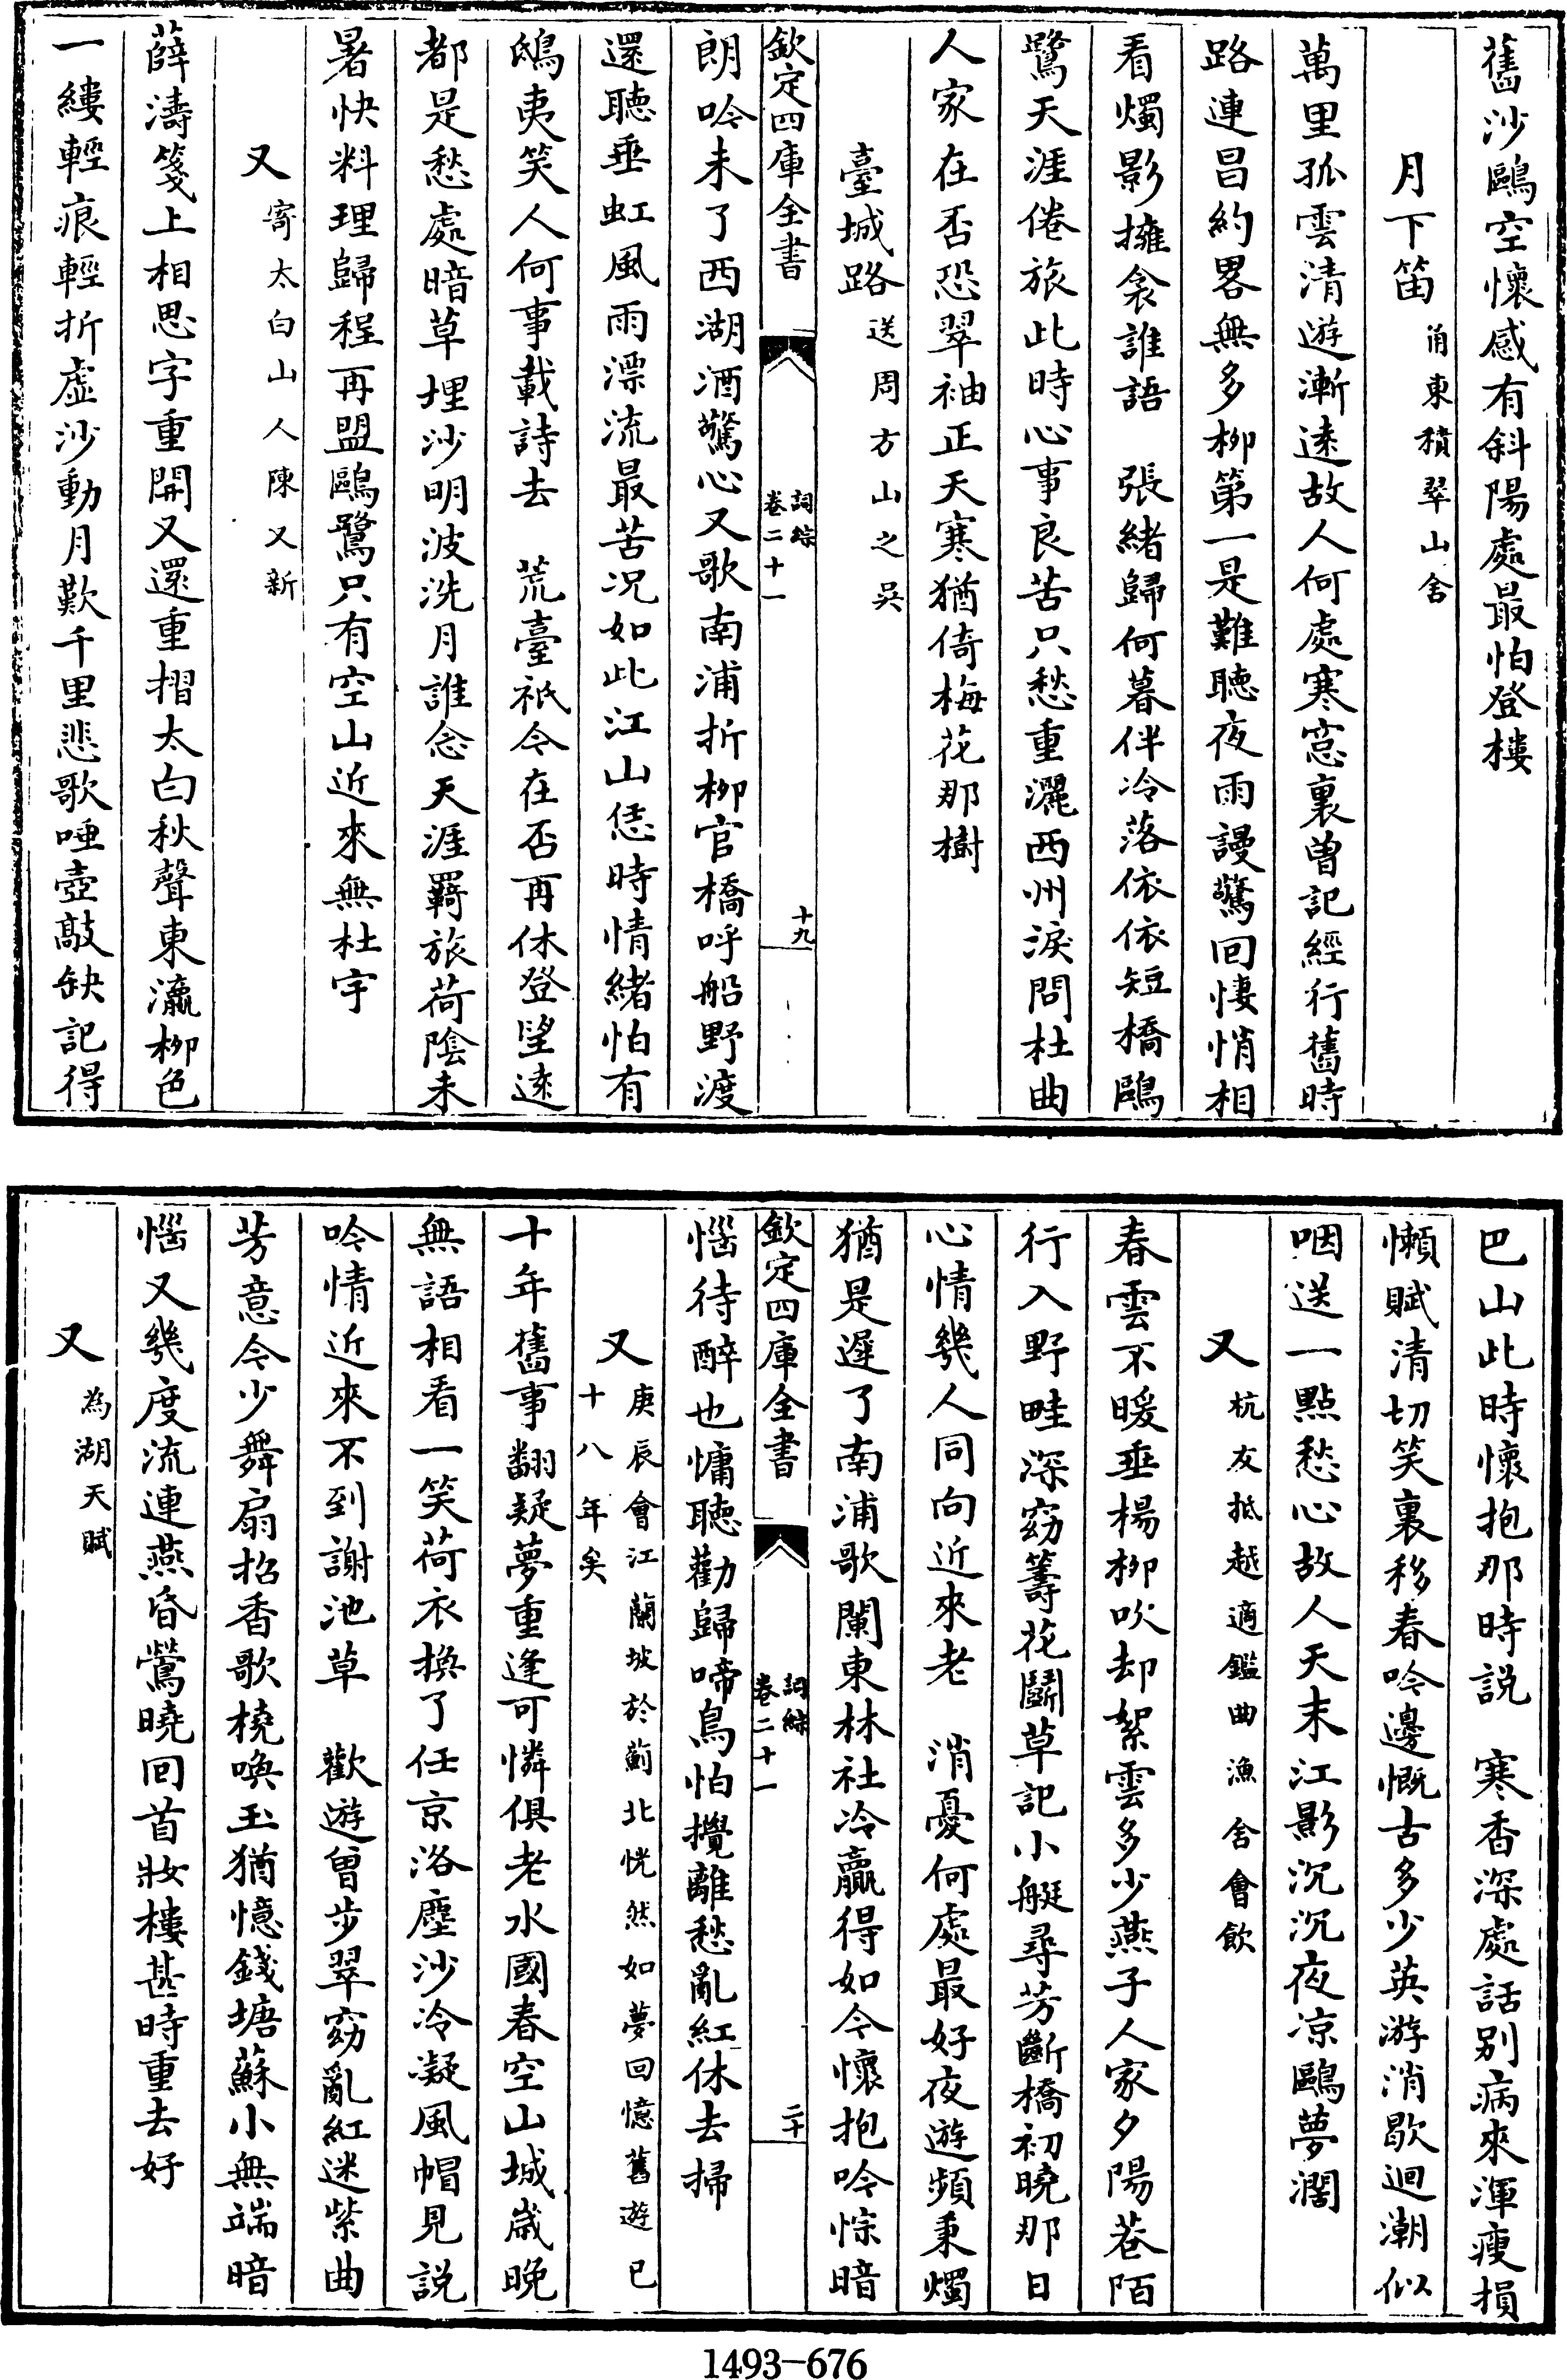 舊沙鷗空懷感有斜陽處最怕登樓
月下笛甬東積翠山舍
萬里孤雲清遊漸遠故人何處寒窓裏曽記經行舊時
路連昌約畧無多栁第一是難聽夜雨謾驚回悽悄相
看燭影擁衾誰語　張緒歸何暮伴冷落依依短橋鷗
鷺天涯倦旅此時心事良苦只愁重灑西州淚問杜曲
人家在否恐翠袖正天寒猶倚梅花那樹
臺城路送周方山之吳
欽定四庫全書
詞綜
卷二十一
十九
朗吟未了西湖酒驚心又歌南浦折栁官橋呼船野渡
還聽垂虹風雨漂流最苦况如此江山恁時情緒怕有
鴟夷笑人何事載詩去　荒臺祇今在否再休登望遠
都是愁處暗草埋沙明波洗月誰念天涯羇旅荷陰未
暑快料理歸程再盟鷗鷺只有空山近來無杜宇
又寄太白山人陳又新
薛濤箋上相思字重開又還重摺太白秋聲東瀛栁色
一縷輕痕輕折虚沙動月歎千里悲歌唾壺敲缺記得
巴山此時懷抱那時説　寒香深處話别病來渾瘦損
懶賦清切笑裏移春吟邊慨古多少英游消歇迴潮似
咽送一點愁心故人天末江影沉沉夜凉鷗夢濶
又杭友抵越適鑑曲漁舍會飲
春雲不暖垂楊栁吹却絮雲多少燕子人家夕陽巷陌
行入野畦深窈籌花鬭草記小艇尋芳斷橋初曉那日
心情幾人同向近來老　消憂何處最好夜遊頻秉燭
猶是遲了南浦歌闌東林社冷贏得如今懷抱吟悰暗
欽定四庫全書
詞綜
卷二十一
二十
惱待醉也慵聽勸歸啼鳥怕攪離愁亂紅休去掃
又庚辰會江蘭坡於薊北恍然如夢回憶舊遊已
十八年矣
十年舊事翻疑夢重逢可憐俱老水國春空山城嵗晚
無語相看一笑荷衣換了任京洛塵沙冷凝風帽見説
吟情近來不到謝池草　歡遊曽步翠窈亂紅迷紫曲
芳意今少舞扇招香歌橈喚玉猶憶錢塘蘇小無端暗
惱又幾度流連燕昏鶯曉回首妝樓甚時重去好
又為湖天賦
1493-676